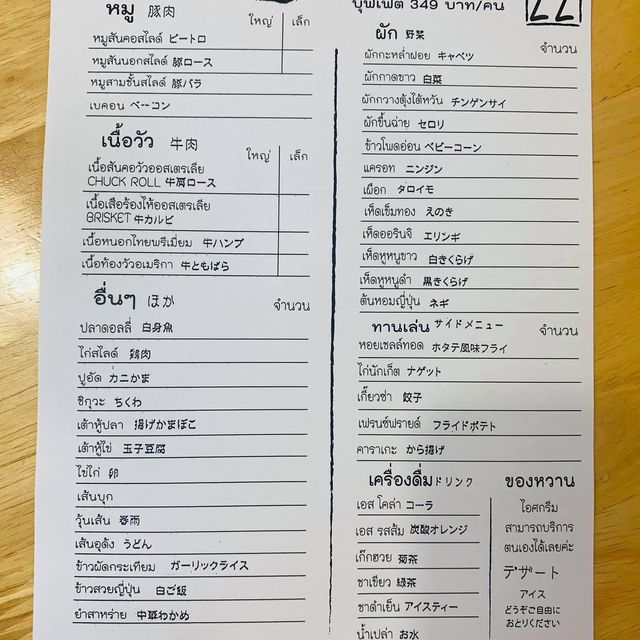 หมู 豚肉
ใหญ่ เล็ก
หมูสันคอสไลด์ ピートロ
หมูสันนอกสไลด์ 豚ロース
หมูสามชั้นสไลด์ 豚バラ
เบคอน ベーコン
เนื้อวัว 牛肉
ใหญ่ เล็ก
เนื้อสันคอวัวออสเตรเลีย
CHUCK ROLL 牛肩ロース
เนื้อเสือร้องไห้ออสเตรเลีย
BRISKET 牛カルビ
เนื้อหนอกไทยพรีเมี่ยม 牛ハンプ
เนื้อท้องวัวอเมริกา 牛ともばら
อื่นๆ ほか
จำนวน
ปลาดอลลี่ 白身魚
ไก่สไลด์ 鶏肉
ปูอัด カニかま
ชิกุวะ ちくわ
เต้าหู้ปลา 揚げかまぼこ
เต้าหู้ไข่ 玉子豆腐
ไข่ไก่ 卵
เส้นบุก
วุ้นเส้น 春雨
เส้นอุด้ง うどん
ข้าวผัดกระเทียม ガーリックライス
ข้าวสวยญี่ปุ่น 白ご飯
ยำสาหร่าย 中華わかめ
บุฟเฟต์ 349 บาท/คน
22
ผัก 野菜
จำนวน
ผักกะหล่ำฝอย キャベツ
ผักกาดขาว 白菜
ผักกวางตุ้งไต้หวัน チンゲンサイ
ผักขึ้นฉ่าย セロリ
ข้าวโพดอ่อน ベビーコーン
แครอท ニンジン
เผือก タロイモ
เห็ดเข็มทอง えのき
เห็ดออรินจิ エリンギ
เห็ดหูหนูขาว 白きくらげ
เห็ดหูหนูดำ 黒きくらげ
ต้นหอมญี่ปุ่น ネギ
ทานเล่น サイドメニュー
จำนวน
หอยเชลล์ทอด ホタテ風味フライ
ไก่นักเก็ต ナゲット
เกี๊ยวซ่า 餃子
เฟรนช์ฟรายด์ フライドポテト
คาราเกะ から揚げ
เครื่องดื่ม ドリンク
เอส โคล่า コーラ
เอส รสส้ม 炭酸オレンジ
เก๊กฮวย 菊茶
ชาเขียว 緑茶
ชาดำเย็น アイスティー
น้ำเปล่า お水
ของหวาน
ไอศกรีม
สามารถบริการ
ตนเองได้เลยค่ะ
デザート
アイス
どうぞご自由に
おとりください